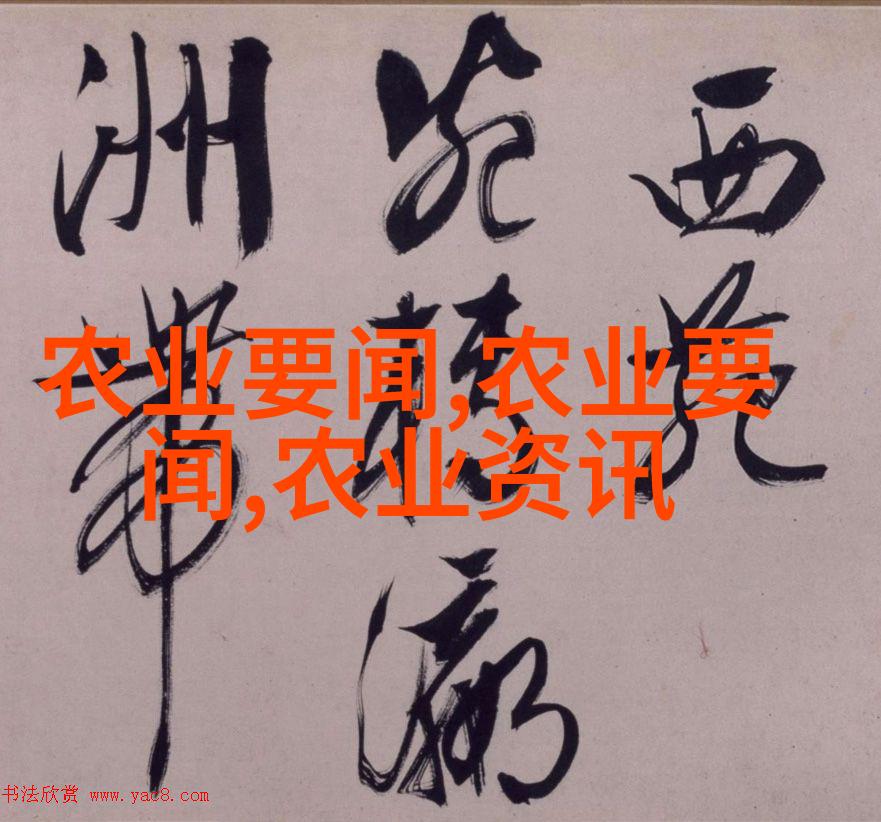 西苑
瀛
洲帶
农业要闻,农业要
闻,农业资讯
书法欣赏 www.yac8.com